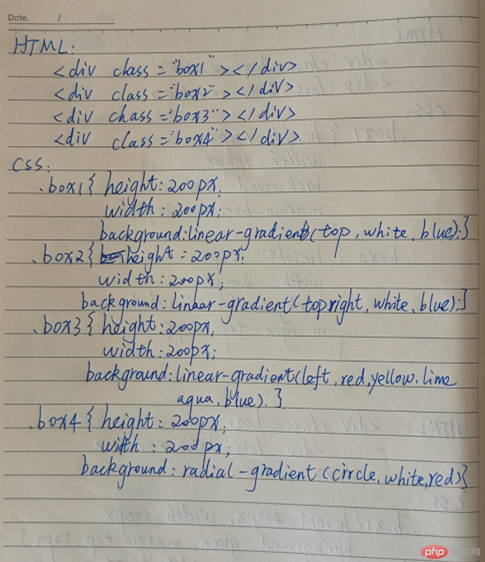 Date. /
HTML:
<div class="box1"></div>
<div class="box2"></div>
<div chass="box3"></div>
<div class="box4"></div>
CSS:
.box1{ height:200px;
width:200px;
background:linear-gradient(top,white,blue);}
.box2{ height:200px;
width:200px;
background:linear-gradient(topright,white,blue);}
.box3{height:200px,
width:200px;
background:linear-gradient(left,red,yellow.lime
aqua,blue).}
.box4{ height:200px;
width:200px;
background:radial-gradient(circle,white,red)}
php